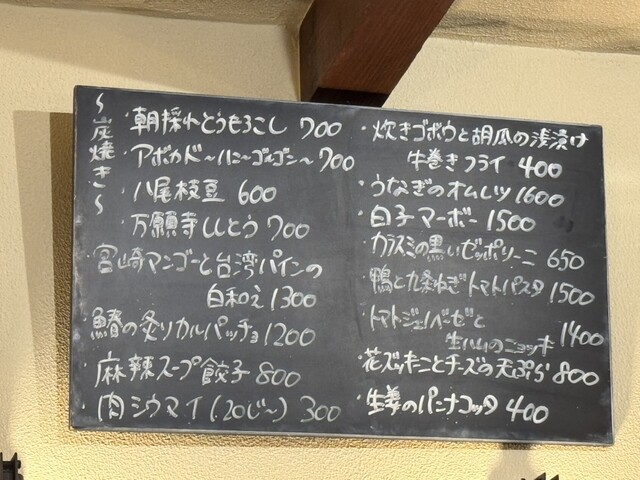 ～炭焼き～
・朝採れとうもろこし 700
・アボカド～ハニーゴルゴンゾーラ～ 700
・八尾枝豆 600
・万願寺ししとう 700
・宮崎マンゴーと台湾パインの
白和え 1300
・鰆の炙りカルパッチョ 1200
・麻辣スープ餃子 800
・肉シウマイ(20じ～) 300
・炊きゴボウと胡瓜の浅漬け
牛巻きフライ 400
・うなぎのオムレツ 1600
・白子マーボー 1500
・カラスミの黒いゼッポリーニ 650
・鴨と九条ねぎトマトパスタ 1500
・トマトジェノベーゼと
生ハムのニョッキ 1400
・花ズッキーニとチーズの天ぷら 800
・生姜のパンナコッタ 400